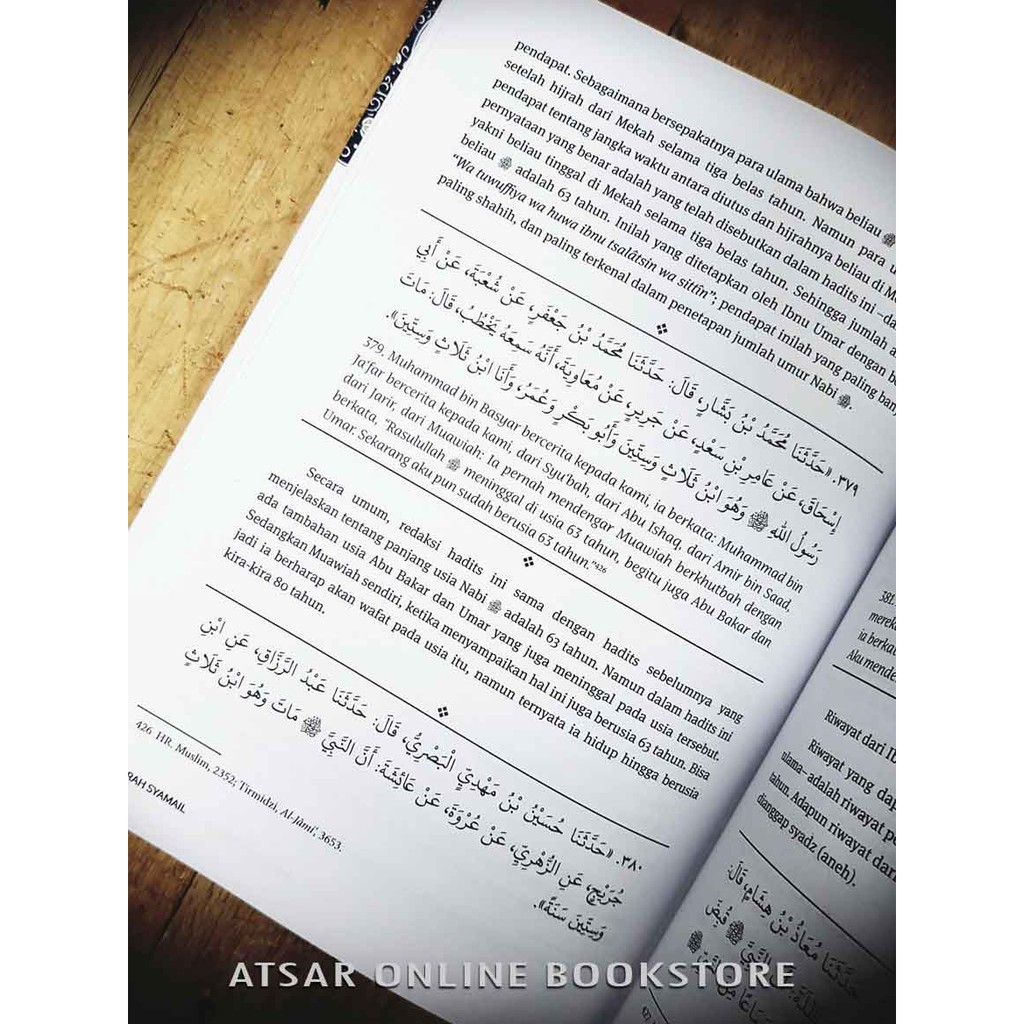 pendapat. Sebagaimana bersepakatnya para ulama bahwa beliau ﷺ
setelah hijrah dari Mekah selama tiga belas tahun. Namun para u
pendapat tentang jangka waktu antara diutus dan hijrahnya beliau di M
pernyataan yang benar adalah yang telah disebutkan dalam hadits ini –da
yakni beliau tinggal di Mekah selama tiga belas tahun. Sehingga jumlah
beliau ﷺ adalah 63 tahun. Inilah yang ditetapkan oleh Ibnu Umar dengan be
"Wa tuwuffiya wa huwa ibnu tsalâtsin wa sittîn"; pendapat inilah yang paling ban
paling shahih, dan paling terkenal dalam penetapan jumlah umur Nabi ﷺ.
٣٧٩. «حَدَّثَنَا مُحَمَّدُ بْنُ بَشَّارٍ، قَالَ: حَدَّثَنَا مُحَمَّدُ بْنُ جَعْفَرٍ، عَنْ شُعْبَةَ، عَنْ أَبِي
إِسْحَاقَ، عَنْ عَامِرِ بْنِ سَعْدٍ، عَنْ جَرِيرٍ، عَنْ مُعَاوِيَةَ، أَنَّهُ سَمِعَهُ يَخْطُبُ، قَالَ: مَاتَ
رَسُولُ اللهِ ﷺ وَهُوَ ابْنُ ثَلَاثٍ وَسِتِّينَ وَأَبُو بَكْرٍ وَعُمَرُ، وَأَنَا ابْنُ ثَلَاثٍ وَسِتِّينَ».
379. Muhammad bin Basyar bercerita kepada kami, ia berkata: Muhammad bin
Ja'far bercerita kepada kami, dari Syu'bah, dari Abu Ishaq, dari Amir bin Saad,
dari Jarir, dari Muawiah: Ia pernah mendengar Muawiah berkhutbah dengan
berkata, "Rasulullah ﷺ meninggal di usia 63 tahun, begitu juga Abu Bakar dan
Umar. Sekarang aku pun sudah berusia 63 tahun."426
Secara umum, redaksi hadits ini sama dengan hadits sebelumnya yang
menjelaskan tentang panjang usia Nabi ﷺ adalah 63 tahun. Namun dalam hadits ini
ada tambahan usia Abu Bakar dan Umar yang juga meninggal pada usia tersebut.
Sedangkan Muawiah sendiri, ketika menyampaikan hal ini juga berusia 63 tahun. Bisa
jadi ia berharap akan wafat pada usia itu, namun ternyata ia hidup hingga berusia
kira-kira 80 tahun.
٣٨٠. «حَدَّثَنَا حُسَيْنُ بْنُ مَهْدِيٍّ الْبَصْرِيُّ، قَالَ: حَدَّثَنَا عَبْدُ الرَّزَّاقِ، عَنِ ابْنِ
جُرَيْجٍ، عَنِ الزُّهْرِيِّ، عَنْ عُرْوَةَ، عَنْ عَائِشَةَ: أَنَّ النَّبِيَّ ﷺ مَاتَ وَهُوَ ابْنُ ثَلَاثٍ
وَسِتِّينَ سَنَةً».
426 HR. Muslim, 2352; Tirmidzi, Al-Jâmi', 3653.
RAH SYAMAIL
381.
merek
ia berka
Aku mende
Riwayat dari Ib
Riwayat yang dap
ulama–adalah riwayat pe
tahun. Adapun riwayat dari
dianggap syadz (aneh).
حَدَّثَنَا مُعَاذُ بْنُ هِشَامٍ، قَالَ:
النَّبِيِّ ﷺ قُبِضَ
ATSAR ONLINE BOOKSTORE